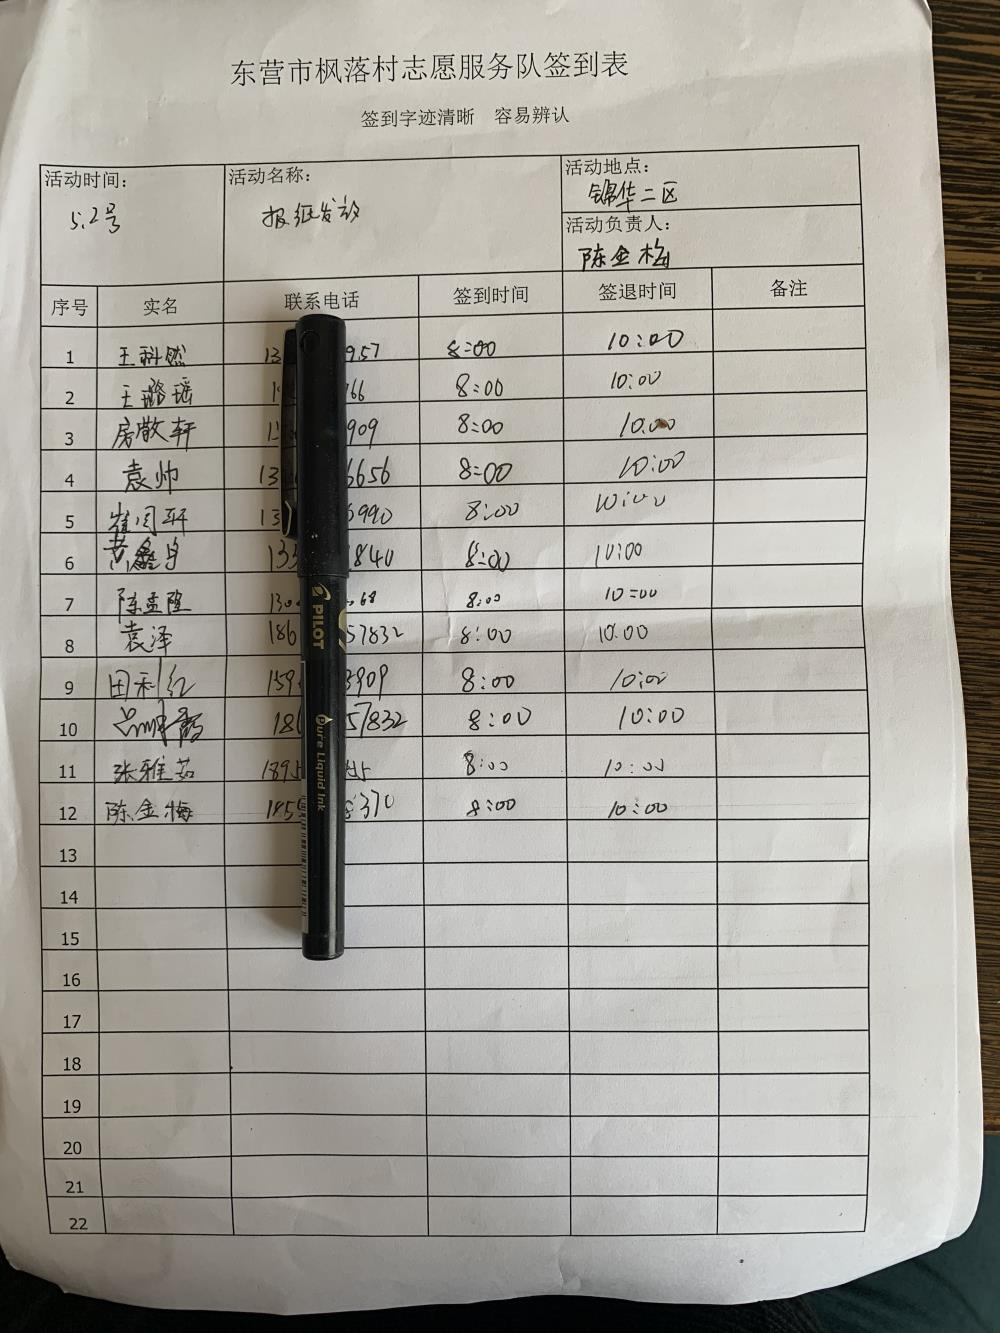 东营市枫落村志愿服务队签到表
签到字迹清晰 容易辨认
活动时间： 活动名称： 活动地点：
5.2号 报纸发放 锦华二区
活动负责人：
陈金梅
序号 实名 联系电话 签到时间 签退时间 备注
1 王科然 13 957 8:00 10:00
2 王璐瑶 166 8:00 10:00
3 房敬轩 1 909 8:00 10:00
4 袁帅 13 6656 8:00 10:00
5 崔闰轩 13 6990 8:00 10:00
6 133 1840 8:00 10:00
7 陈孟隆 130 68 8:00 10:00
8 袁泽 186 57832 8:00 10:00
9 田利红 159 3909 8:00 10:00
10 186 57832 8:00 10:00
11 张雅茹 1895 8:00 10:00
12 陈金梅 370 8:00 10:00
13
14
15
16
17
18
19
20
21
22
PILOT
Pure Liquid Ink